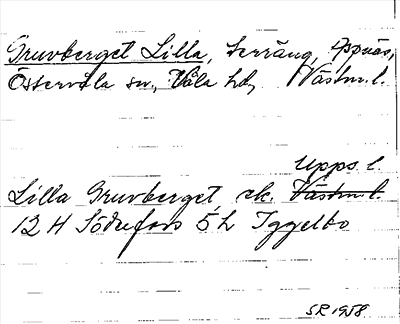 Gruvberget Lilla, terräng, Appnäs,
Östervåla sn, Våla hd, Västm. l.
Upps. l.
Lilla Gruvberget ek. Västm. l.
12 H Söderfors 5 h Iggelbo
SR 1958